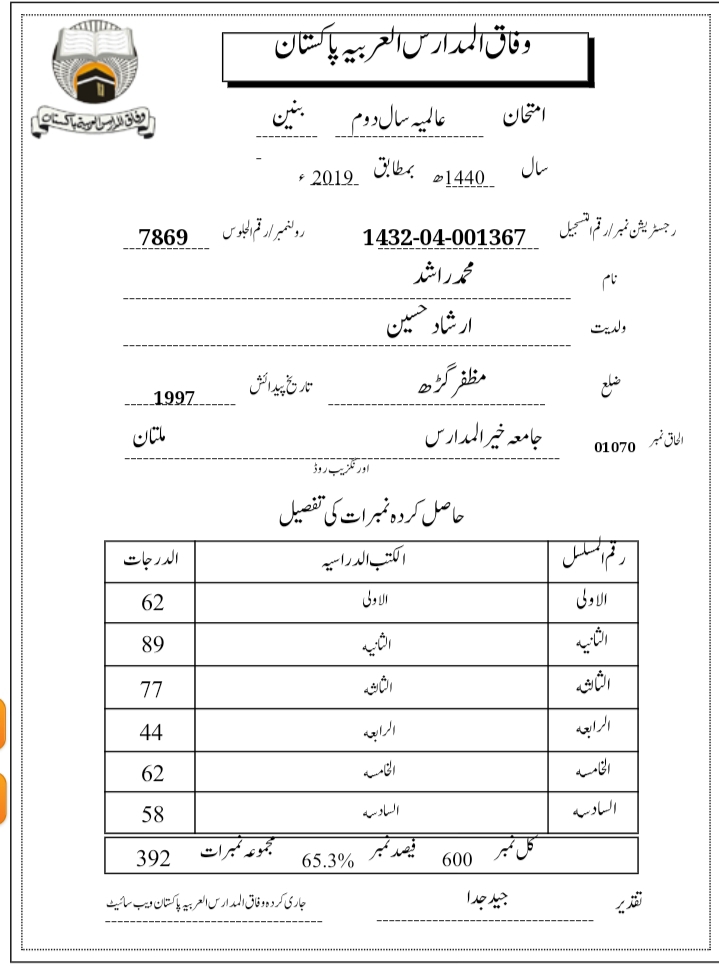 وفاق المدارس العربیہ پاکستان
وفاق المدارس العربیہ پاکستان
امتحان عالمیہ سال دوم بنین
سال 1440ھ بمطابق 2019ء
رجسٹریشن نمبر/رقم التسجیل 1432-04-001367 رولنمبر/رقم الجلوس 7869
نام محمد راشد
ولدیت ارشاد حسین
ضلع مظفر گڑھ تاریخ پیدائش 1997
الحاق نمبر 01070 جامعہ خیر المدارس ملتان
اورنگزیب روڈ
حاصل کردہ نمبرات کی تفصیل
رقم المسلسل الکتب الدراسیہ الدرجات
الاولی الاولی 62
الثانیہ الثانیہ 89
الثالثہ الثالثہ 77
الرابعہ الرابعہ 44
الخامسہ الخامسہ 62
السادسہ السادسہ 58
کل نمبر 600 فیصد نمبر 65.3% مجموعہ نمبرات 392
تقدیر جید جدا جاری کردہ وفاق المدارس العربیہ پاکستان ویب سائیٹ